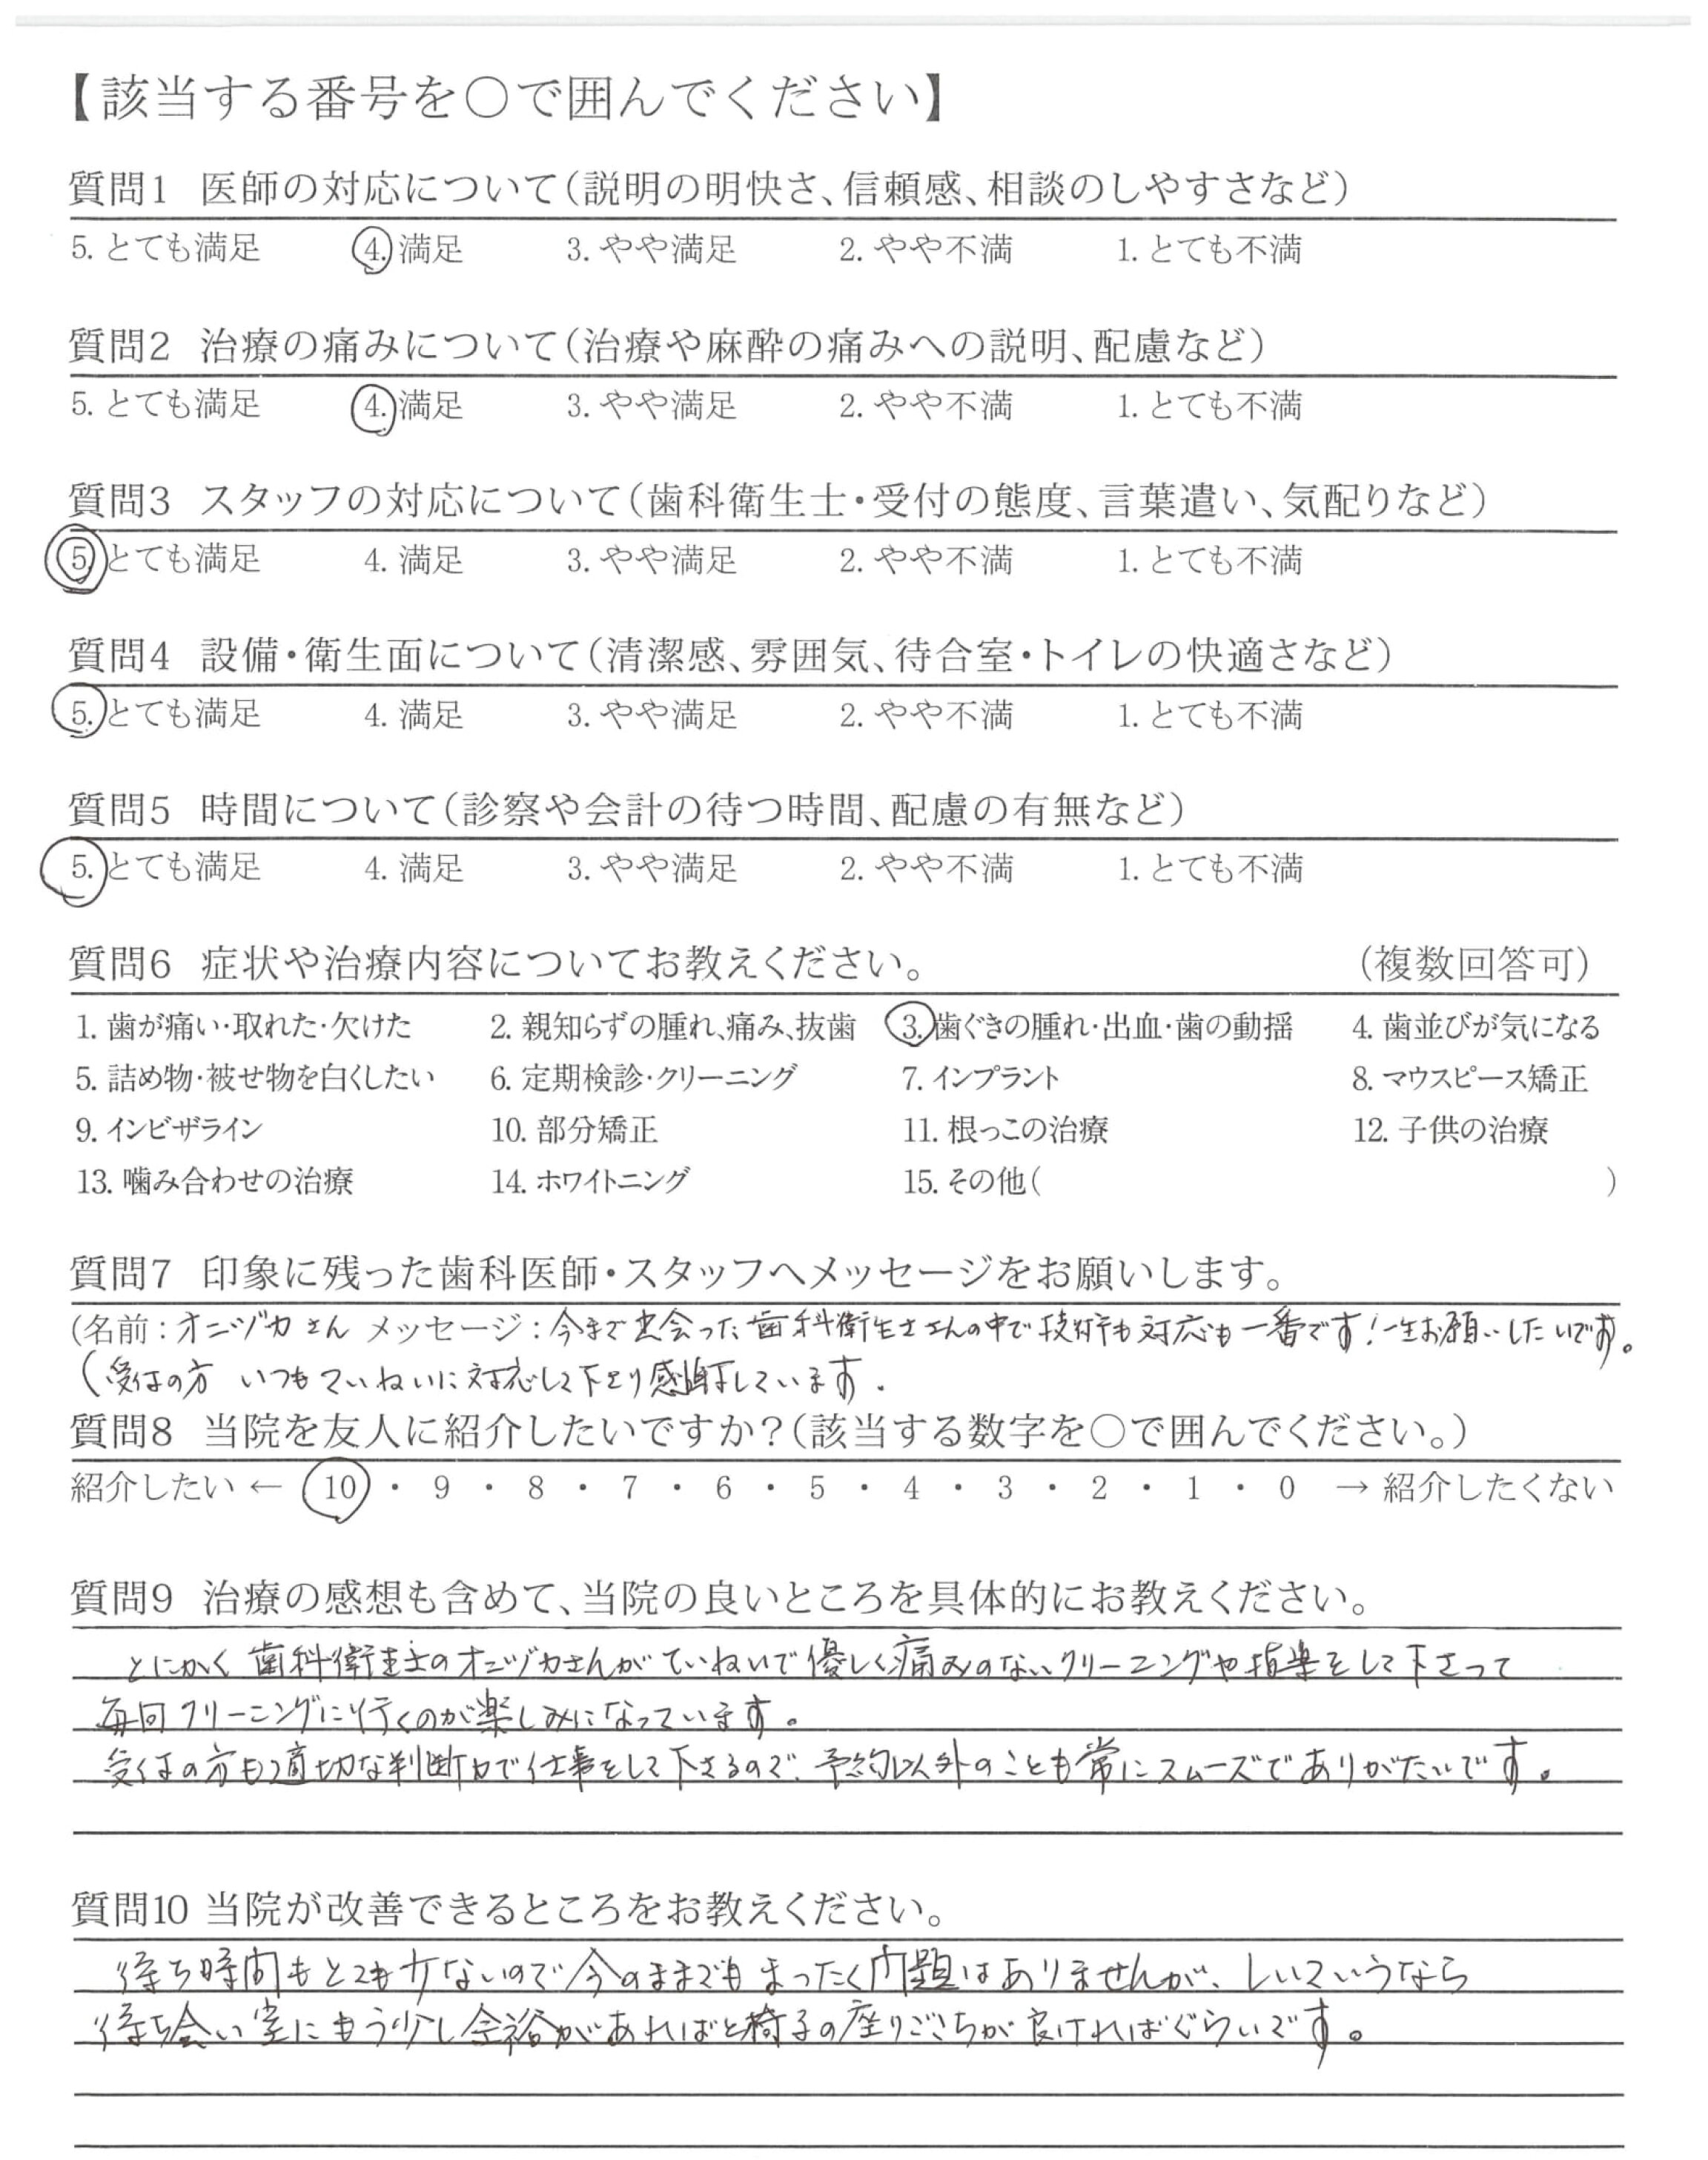 【該当する番号を○で囲んでください】
質問1 医師の対応について(説明の明快さ、信頼感、相談のしやすさなど)
5. とても満足 4. 満足 3. やや満足 2. やや不満 1. とても不満
質問2 治療の痛みについて(治療や麻酔の痛みへの説明、配慮など)
5. とても満足 4. 満足 3. やや満足 2. やや不満 1. とても不満
質問3 スタッフの対応について(歯科衛生士・受付の態度、言葉遣い、気配りなど)
5. とても満足 4. 満足 3. やや満足 2. やや不満 1. とても不満
質問4 設備・衛生面について(清潔感、雰囲気、待合室・トイレの快適さなど)
5. とても満足 4. 満足 3. やや満足 2. やや不満 1. とても不満
質問5 時間について(診察や会計の待つ時間、配慮の有無など)
5. とても満足 4. 満足 3. やや満足 2. やや不満 1. とても不満
質問6 症状や治療内容についてお教えください。 (複数回答可)
1. 歯が痛い・取れた・欠けた 2. 親知らずの腫れ、痛み、抜歯 3. 歯ぐきの腫れ・出血・歯の動揺 4. 歯並びが気になる
5. 詰め物・被せ物を白くしたい 6. 定期検診・クリーニング 7. インプラント 8. マウスピース矯正
9. インビザライン 10. 部分矯正 11. 根っこの治療 12. 子供の治療
13. 噛み合わせの治療 14. ホワイトニング 15. その他( )
質問7 印象に残った歯科医師・スタッフへメッセージをお願いします。
(名前：オニヅカさん メッセージ：今まで出会った歯科衛生士さんの中で技術も対応も一番です!一生お願いしたいです。
(受付の方 いつもていねいに対応して下さり感謝しています.
質問8 当院を友人に紹介したいですか?(該当する数字を○で囲んでください。)
紹介したい ← 10 ・ 9 ・ 8 ・ 7 ・ 6 ・ 5 ・ 4 ・ 3 ・ 2 ・ 1 ・ 0 → 紹介したくない
質問9 治療の感想も含めて、当院の良いところを具体的にお教えください。
とにかく歯科衛生士のオニヅカさんがていねいで優しく痛みのないクリーニングや指導をして下さって
毎回クリーニングに行くのが楽しみになっています。
受付の方も適切な判断力で仕事をして下さるので、予約以外のことも常にスムーズでありがたいです。
質問10 当院が改善できるところをお教えください。
待ち時間もとても少ないので今のままでもまったく問題はありませんが、しいていうなら
待ち会い室にもう少し余裕があればと椅子の座りごこちが良ければぐらいです。